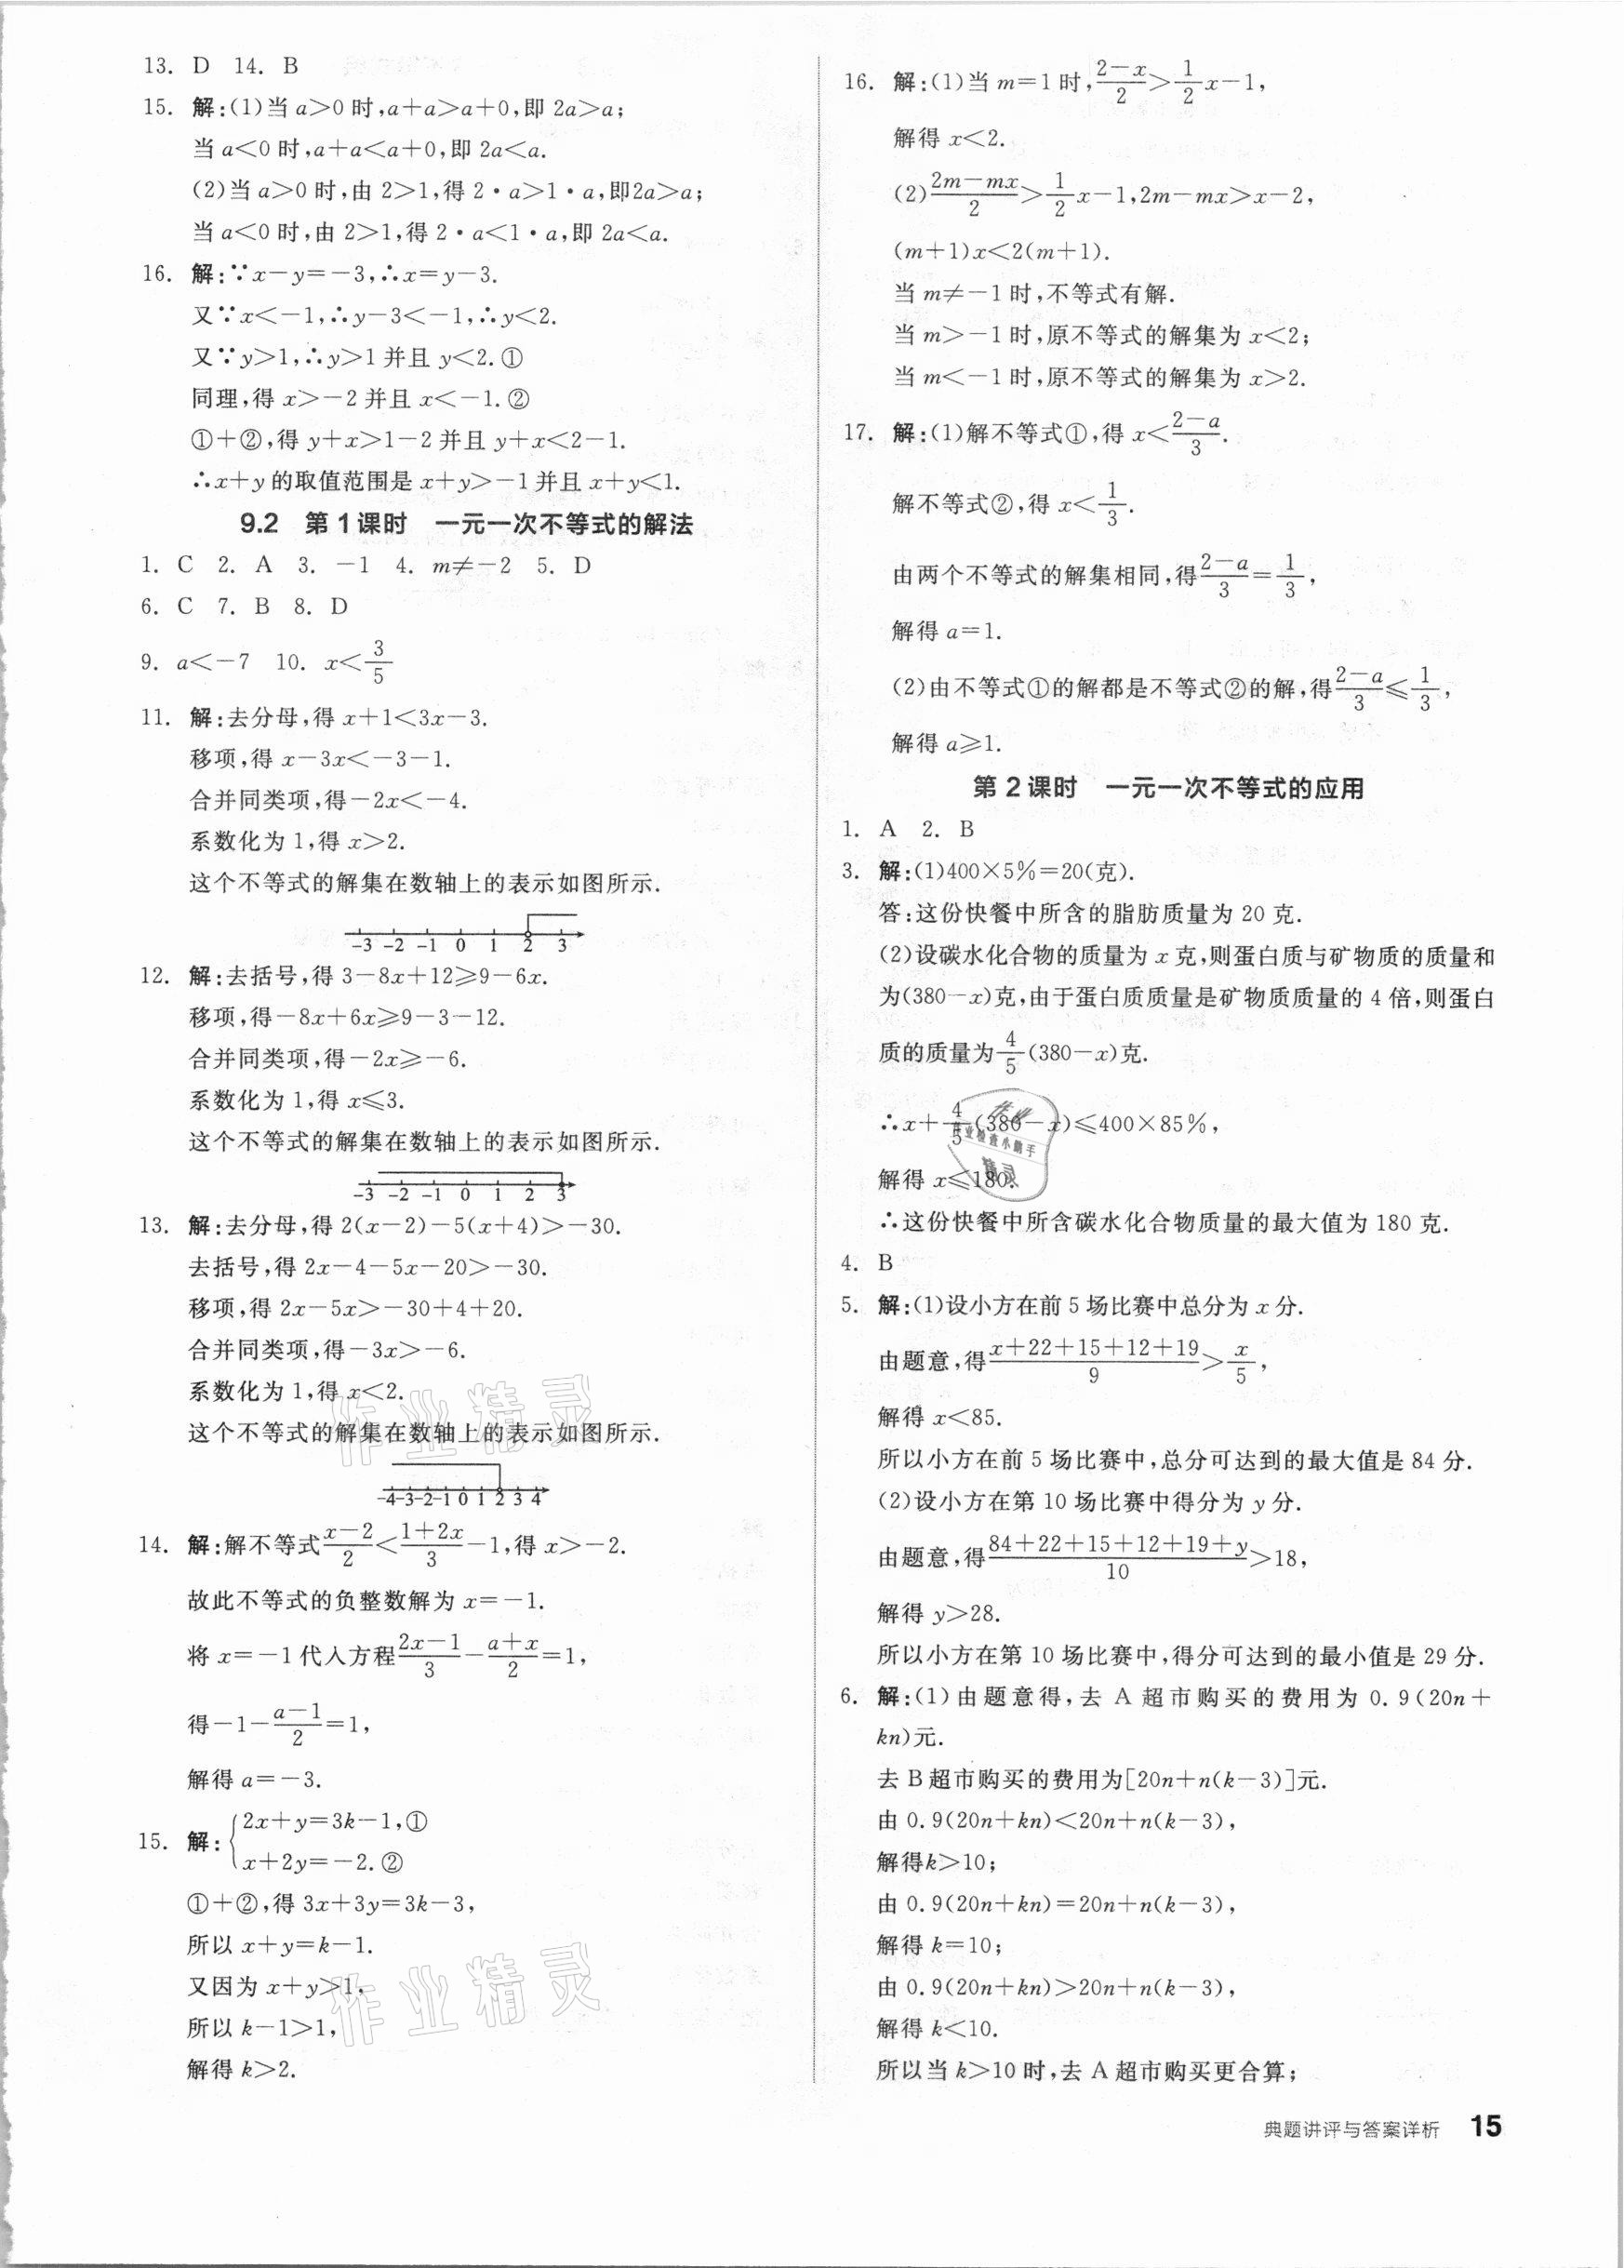 13. D 14. B
15. 解:(1)当 a>0 时,a+a>a+0,即 2a>a;
当 a<0 时,a+a<a+0,即 2a<a.
(2)当 a>0 时,由 2>1,得 2·a>1·a,即2a>a;
当 a<0 时,由 2>1,得 2·a<1·a,即 2a<a.
16. 解:∵x-y=-3,∴x=y-3.
又∵x<-1,∴y-3<-1,∴y<2.
又∵y>1,∴y>1 并且 y<2.①
同理,得 x>-2 并且 x<-1.②
①+②,得 y+x>1-2 并且 y+x<2-1.
∴x+y 的取值范围是 x+y>-1 并且 x+y<1.
9.2 第 1 课时 一元一次不等式的解法
1. C 2. A 3. -1 4. m≠-2 5. D
6. C 7. B 8. D
9. a<-7 10. x<3/5
11. 解:去分母,得 x+1<3x-3.
移项,得 x-3x<-3-1.
合并同类项,得-2x<-4.
系数化为 1,得 x>2.
这个不等式的解集在数轴上的表示如图所示.
-3 -2 -1 0 1 2 3
12. 解:去括号,得 3-8x+12≥9-6x.
移项,得-8x+6x≥9-3-12.
合并同类项,得-2x≥-6.
系数化为 1,得 x≤3.
这个不等式的解集在数轴上的表示如图所示.
-3 -2 -1 0 1 2 3
13. 解:去分母,得 2(x-2)-5(x+4)>-30.
去括号,得 2x-4-5x-20>-30.
移项,得 2x-5x>-30+4+20.
合并同类项,得-3x>-6.
系数化为 1,得 x<2.
这个不等式的解集在数轴上的表示如图所示.
-4-3-2-1 0 1 2 3 4
14. 解:解不等式(x-2)/2<(1+2x)/3-1,得 x>-2.
故此不等式的负整数解为 x=-1.
将 x=-1 代入方程(2x-1)/3-(a+x)/2=1,
得-1-(a-1)/2=1,
解得 a=-3.
15. 解:{2x+y=3k-1,①
x+2y=-2.②
①+②,得 3x+3y=3k-3,
所以 x+y=k-1.
又因为 x+y>1,
所以 k-1>1,
解得 k>2.
16. 解:(1)当 m=1 时,(2-x)/2>1/2x-1,
解得 x<2.
(2)(2m-mx)/2>1/2x-1,2m-mx>x-2,
(m+1)x<2(m+1).
当 m≠-1 时,不等式有解.
当 m>-1 时,原不等式的解集为 x<2;
当 m<-1 时,原不等式的解集为 x>2.
17. 解:(1)解不等式①,得 x<(2-a)/3.
解不等式②,得 x<1/3.
由两个不等式的解集相同,得(2-a)/3=1/3,
解得 a=1.
(2)由不等式①的解都是不等式②的解,得(2-a)/3≤1/3,
解得 a≥1.
第 2 课时 一元一次不等式的应用
1. A 2. B
3. 解:(1)400×5%=20(克).
答:这份快餐中所含的脂肪质量为 20 克.
(2)设碳水化合物的质量为 x 克,则蛋白质与矿物质的质量和
为(380-x)克,由于蛋白质质量是矿物质质量的 4 倍,则蛋白
质的质量为4/5(380-x)克.
∴x+4/5(380-x)≤400×85%,
解得 x≤180.
∴这份快餐中所含碳水化合物质量的最大值为 180 克.
4. B
5. 解:(1)设小方在前 5 场比赛中总分为 x 分.
由题意,得(x+22+15+12+19)/9>x/5,
解得 x<85.
所以小方在前 5 场比赛中,总分可达到的最大值是 84 分.
(2)设小方在第 10 场比赛中得分为 y 分.
由题意,得(84+22+15+12+19+y)/10>18,
解得 y>28.
所以小方在第 10 场比赛中,得分可达到的最小值是 29 分.
6. 解:(1)由题意得,去 A 超市购买的费用为 0.9(20n+
kn)元.
去 B 超市购买的费用为[20n+n(k-3)]元.
由 0.9(20n+kn)<20n+n(k-3),
解得k>10;
由 0.9(20n+kn)=20n+n(k-3),
解得 k=10;
由 0.9(20n+kn)>20n+n(k-3),
解得 k<10.
所以当 k>10 时,去 A 超市购买更合算;
典题讲评与答案详析 15
作业精灵
作业精灵